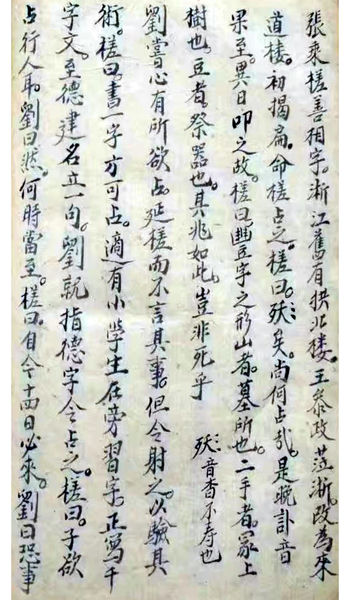 張乘槎善相字。浙江舊有拱北楼。王參政蒞浙。改為來
道楼。初揭扁。命槎占之。槎曰。殀矣。尚何占哉。是晚訃音
果至。異日叩之故。槎曰豐字之形山者。墓所也。二手者。冢上
樹也。豆者。祭器也。其兆如此。豈非死乎 殀。音杳不寿也
劉嘗心有所欲占。延槎而不言其事。但令射之。以驗其
術。槎曰。書一字方可占。適有小學生在旁習字。正寫千
字文。至德建名立一句。劉就指德字令占之。槎曰。子欲
占行人耳。劉曰然。何時當至。槎曰。自今十四日必來。劉曰恐事